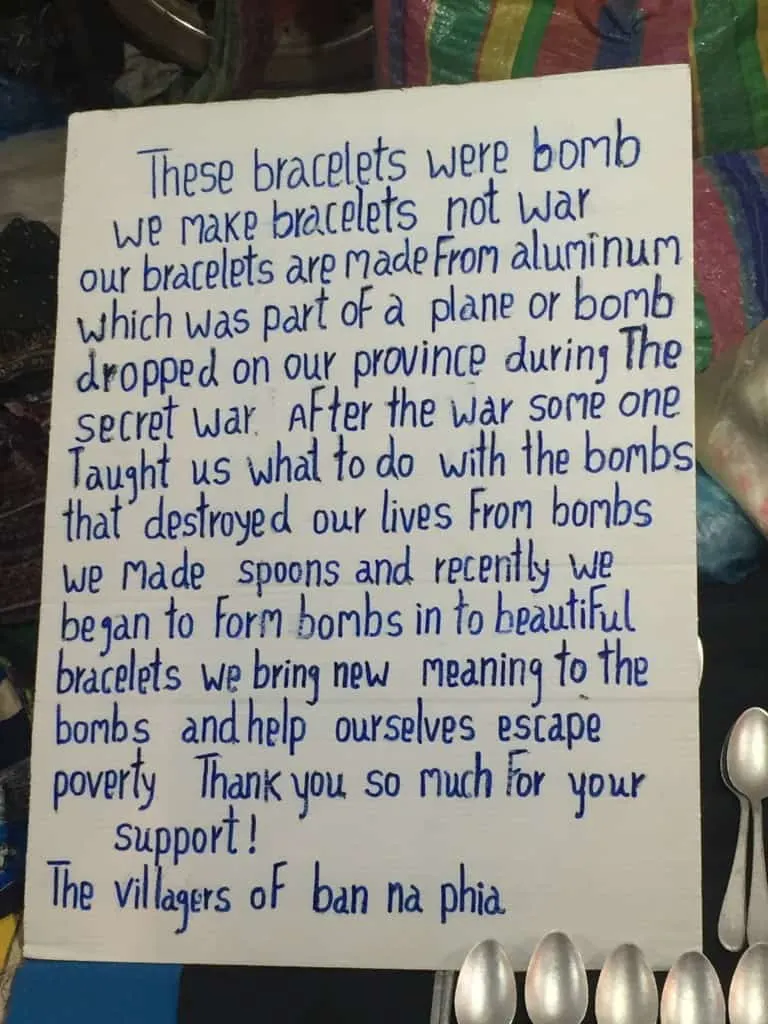 These bracelets were bomb
we make bracelets not war
our bracelets are made From aluminum
which was part of a plane or bomb
dropped on our province during The
secret war. AFter the war some one
Taught us what to do with the bombs
that destroyed our lives From bombs
we made spoons and recently we
began to Form bombs in to beautiFul
bracelets we bring new meaning to the
bombs and help ourselves escape
poverty Thank you so much For your
support!
The villagers oF ban na phia